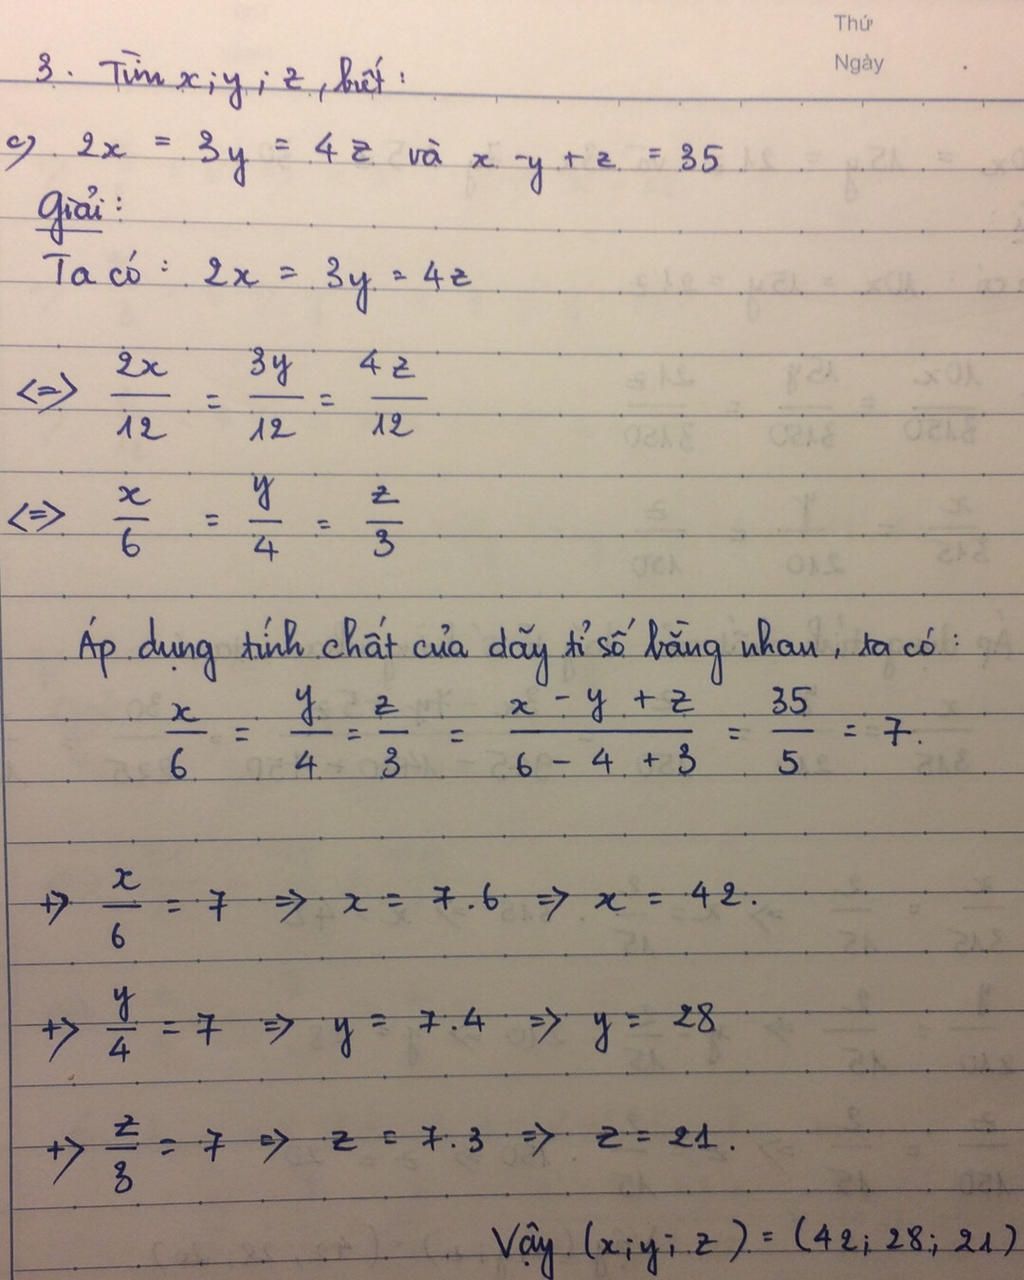 Thứ
Ngày
3. Tìm x; y; z, biết:
c) 2x = 3y = 4z và x - y + z = 35
Giải:
Ta có: 2x = 3y = 4z
<=> 2x/12 = 3y/12 = 4z/12
<=> x/6 = y/4 = z/3
Áp dụng tính chất của dãy tỉ số bằng nhau, ta có:
x/6 = y/4 = z/3 = (x - y + z)/(6 - 4 + 3) = 35/5 = 7.
+> x/6 = 7 => x = 7.6 => x = 42.
+> y/4 = 7 => y = 7.4 => y = 28
+> z/3 = 7 => z = 7.3 => z = 21.
Vậy (x; y; z) = (42; 28; 21)